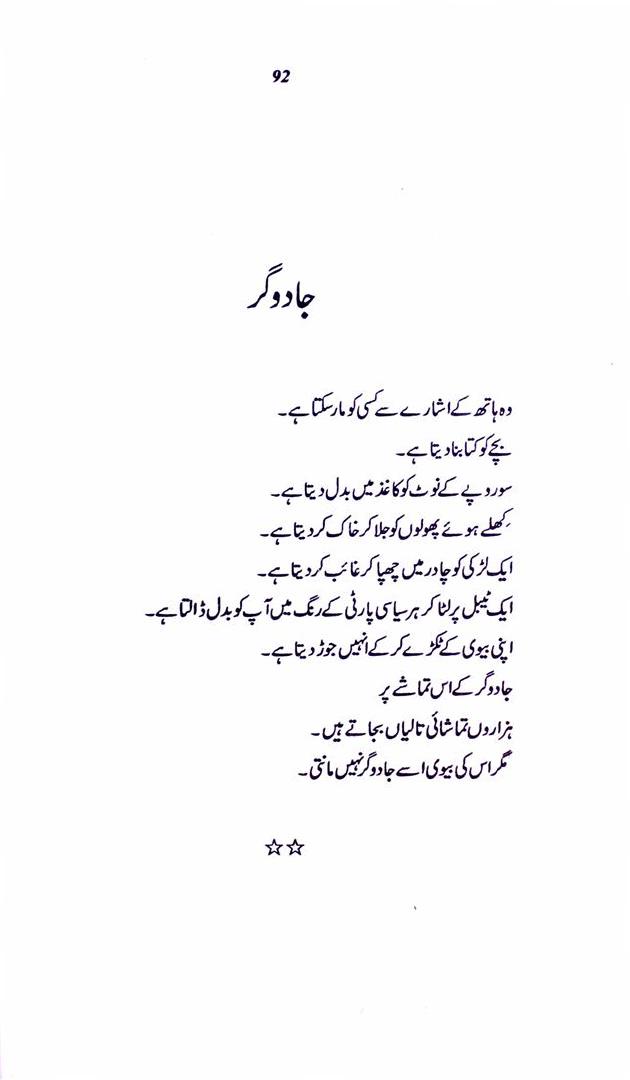 92
جادوگر
وہ ہاتھ کے اشارے سے کسی کو مار سکتا ہے۔
بچے کو کتا بنا دیتا ہے۔
سو روپے کے نوٹ کو کاغذ میں بدل دیتا ہے۔
کِھلے ہوئے پھولوں کو جلا کر خاک کر دیتا ہے۔
ایک لڑکی کو چادر میں چھپا کر غائب کر دیتا ہے۔
ایک ٹیبل پر لٹا کر ہر سیاسی پارٹی کے رنگ میں آپ کو بدل ڈالتا ہے۔
اپنی بیوی کے ٹکڑے کر کے انہیں جوڑ دیتا ہے۔
جادوگر کے اس تماشے پر
ہزاروں تماشائی تالیاں بجاتے ہیں۔
مگر اس کی بیوی اسے جادوگر نہیں مانتی۔
☆☆